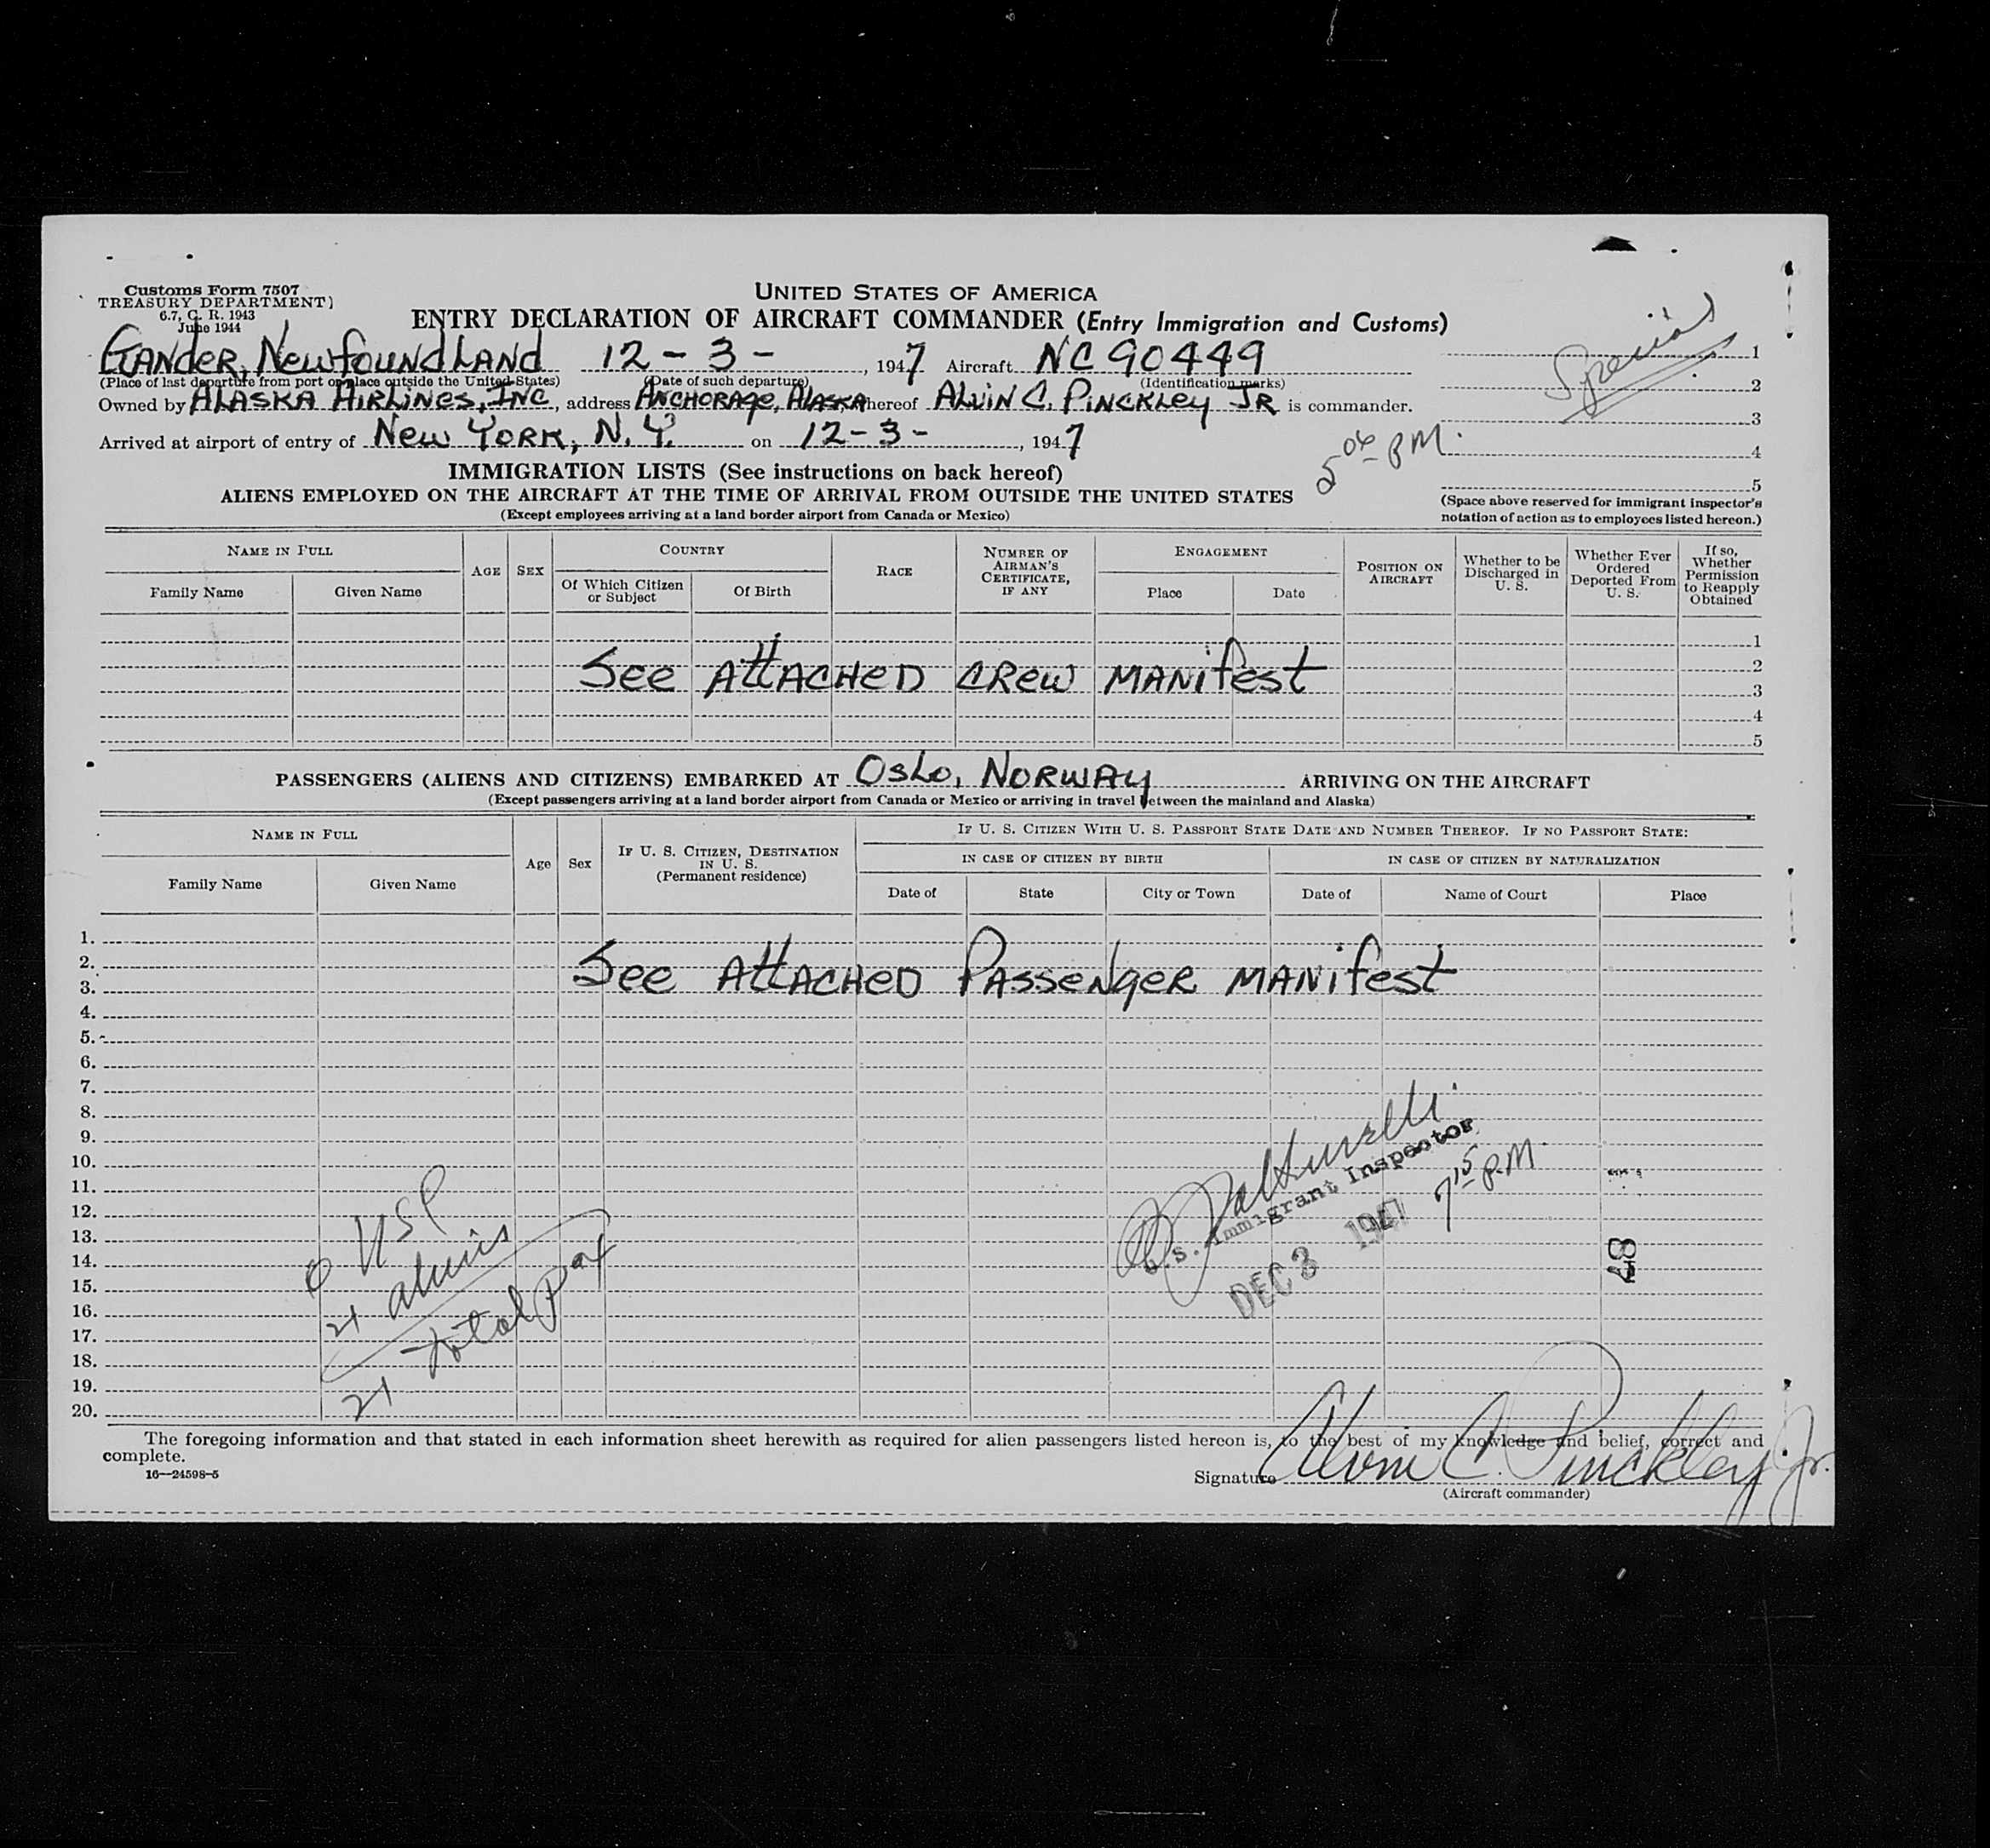 Customs Form 7507
TREASURY DEPARTMENT)
6.7, C. R. 1943
June 1944
UNITED STATES OF AMERICA
ENTRY DECLARATION OF AIRCRAFT COMMANDER (Entry Immigration and Customs)
Special
GANDER, NEWFOUNDLAND 12-3-, 1947 Aircraft NC90449 1
(Place of last departure from port or place outside the United States) (Date of such departure) (Identification marks) 2
Owned by ALASKA AIRLINES, INC, address ANCHORAGE, ALASKA hereof ALVIN C. PINCKLEY JR is commander.
3
Arrived at airport of entry of NEW YORK, N.Y. on 12-3-, 1947
5 06 PM. 4
IMMIGRATION LISTS (See instructions on back hereof)
5
ALIENS EMPLOYED ON THE AIRCRAFT AT THE TIME OF ARRIVAL FROM OUTSIDE THE UNITED STATES
(Except employees arriving at a land border airport from Canada or Mexico)
(Space above reserved for immigrant inspector's
notation of action as to employees listed hereon.)
NAME IN FULL
Family Name Given Name
AGE
SEX
COUNTRY
Of Which Citizen
or Subject
Of Birth
RACE
NUMBER OF
AIRMAN'S
CERTIFICATE,
IF ANY
ENGAGEMENT
Place Date
POSITION ON
AIRCRAFT
Whether to be
Discharged in
U. S.
Whether Ever
Ordered
Deported From
U. S.
If so,
Whether
Permission
to Reapply
Obtained
1
2
SEE ATTACHED CREW MANIFEST
3
4
5
PASSENGERS (ALIENS AND CITIZENS) EMBARKED AT OSLO, NORWAY ARRIVING ON THE AIRCRAFT
(Except passengers arriving at a land border airport from Canada or Mexico or arriving in travel between the mainland and Alaska)
NAME IN FULL
Family Name Given Name
Age
Sex
IF U. S. CITIZEN, DESTINATION
IN U. S.
(Permanent residence)
IF U. S. CITIZEN WITH U. S. PASSPORT STATE DATE AND NUMBER THEREOF. IF NO PASSPORT STATE:
IN CASE OF CITIZEN BY BIRTH
IN CASE OF CITIZEN BY NATURALIZATION
Date of State City or Town Date of Name of Court Place
1.
2.
SEE ATTACHED PASSENGER MANIFEST
3.
4.
5.
6.
7.
8.
9.
10.
11.
12.
13.
14.
15.
16.
17.
18.
19.
20.
U.S. Immigrant Inspector
7 15 P.M.
DEC 3 1947
0 USC
21 aliens
21 total pax
The foregoing information and that stated in each information sheet herewith as required for alien passengers listed hereon is, to the best of my knowledge and belief, correct and
complete.
16—24598-5
Signature Alvin C. Pinckley Jr.
(Aircraft commander)